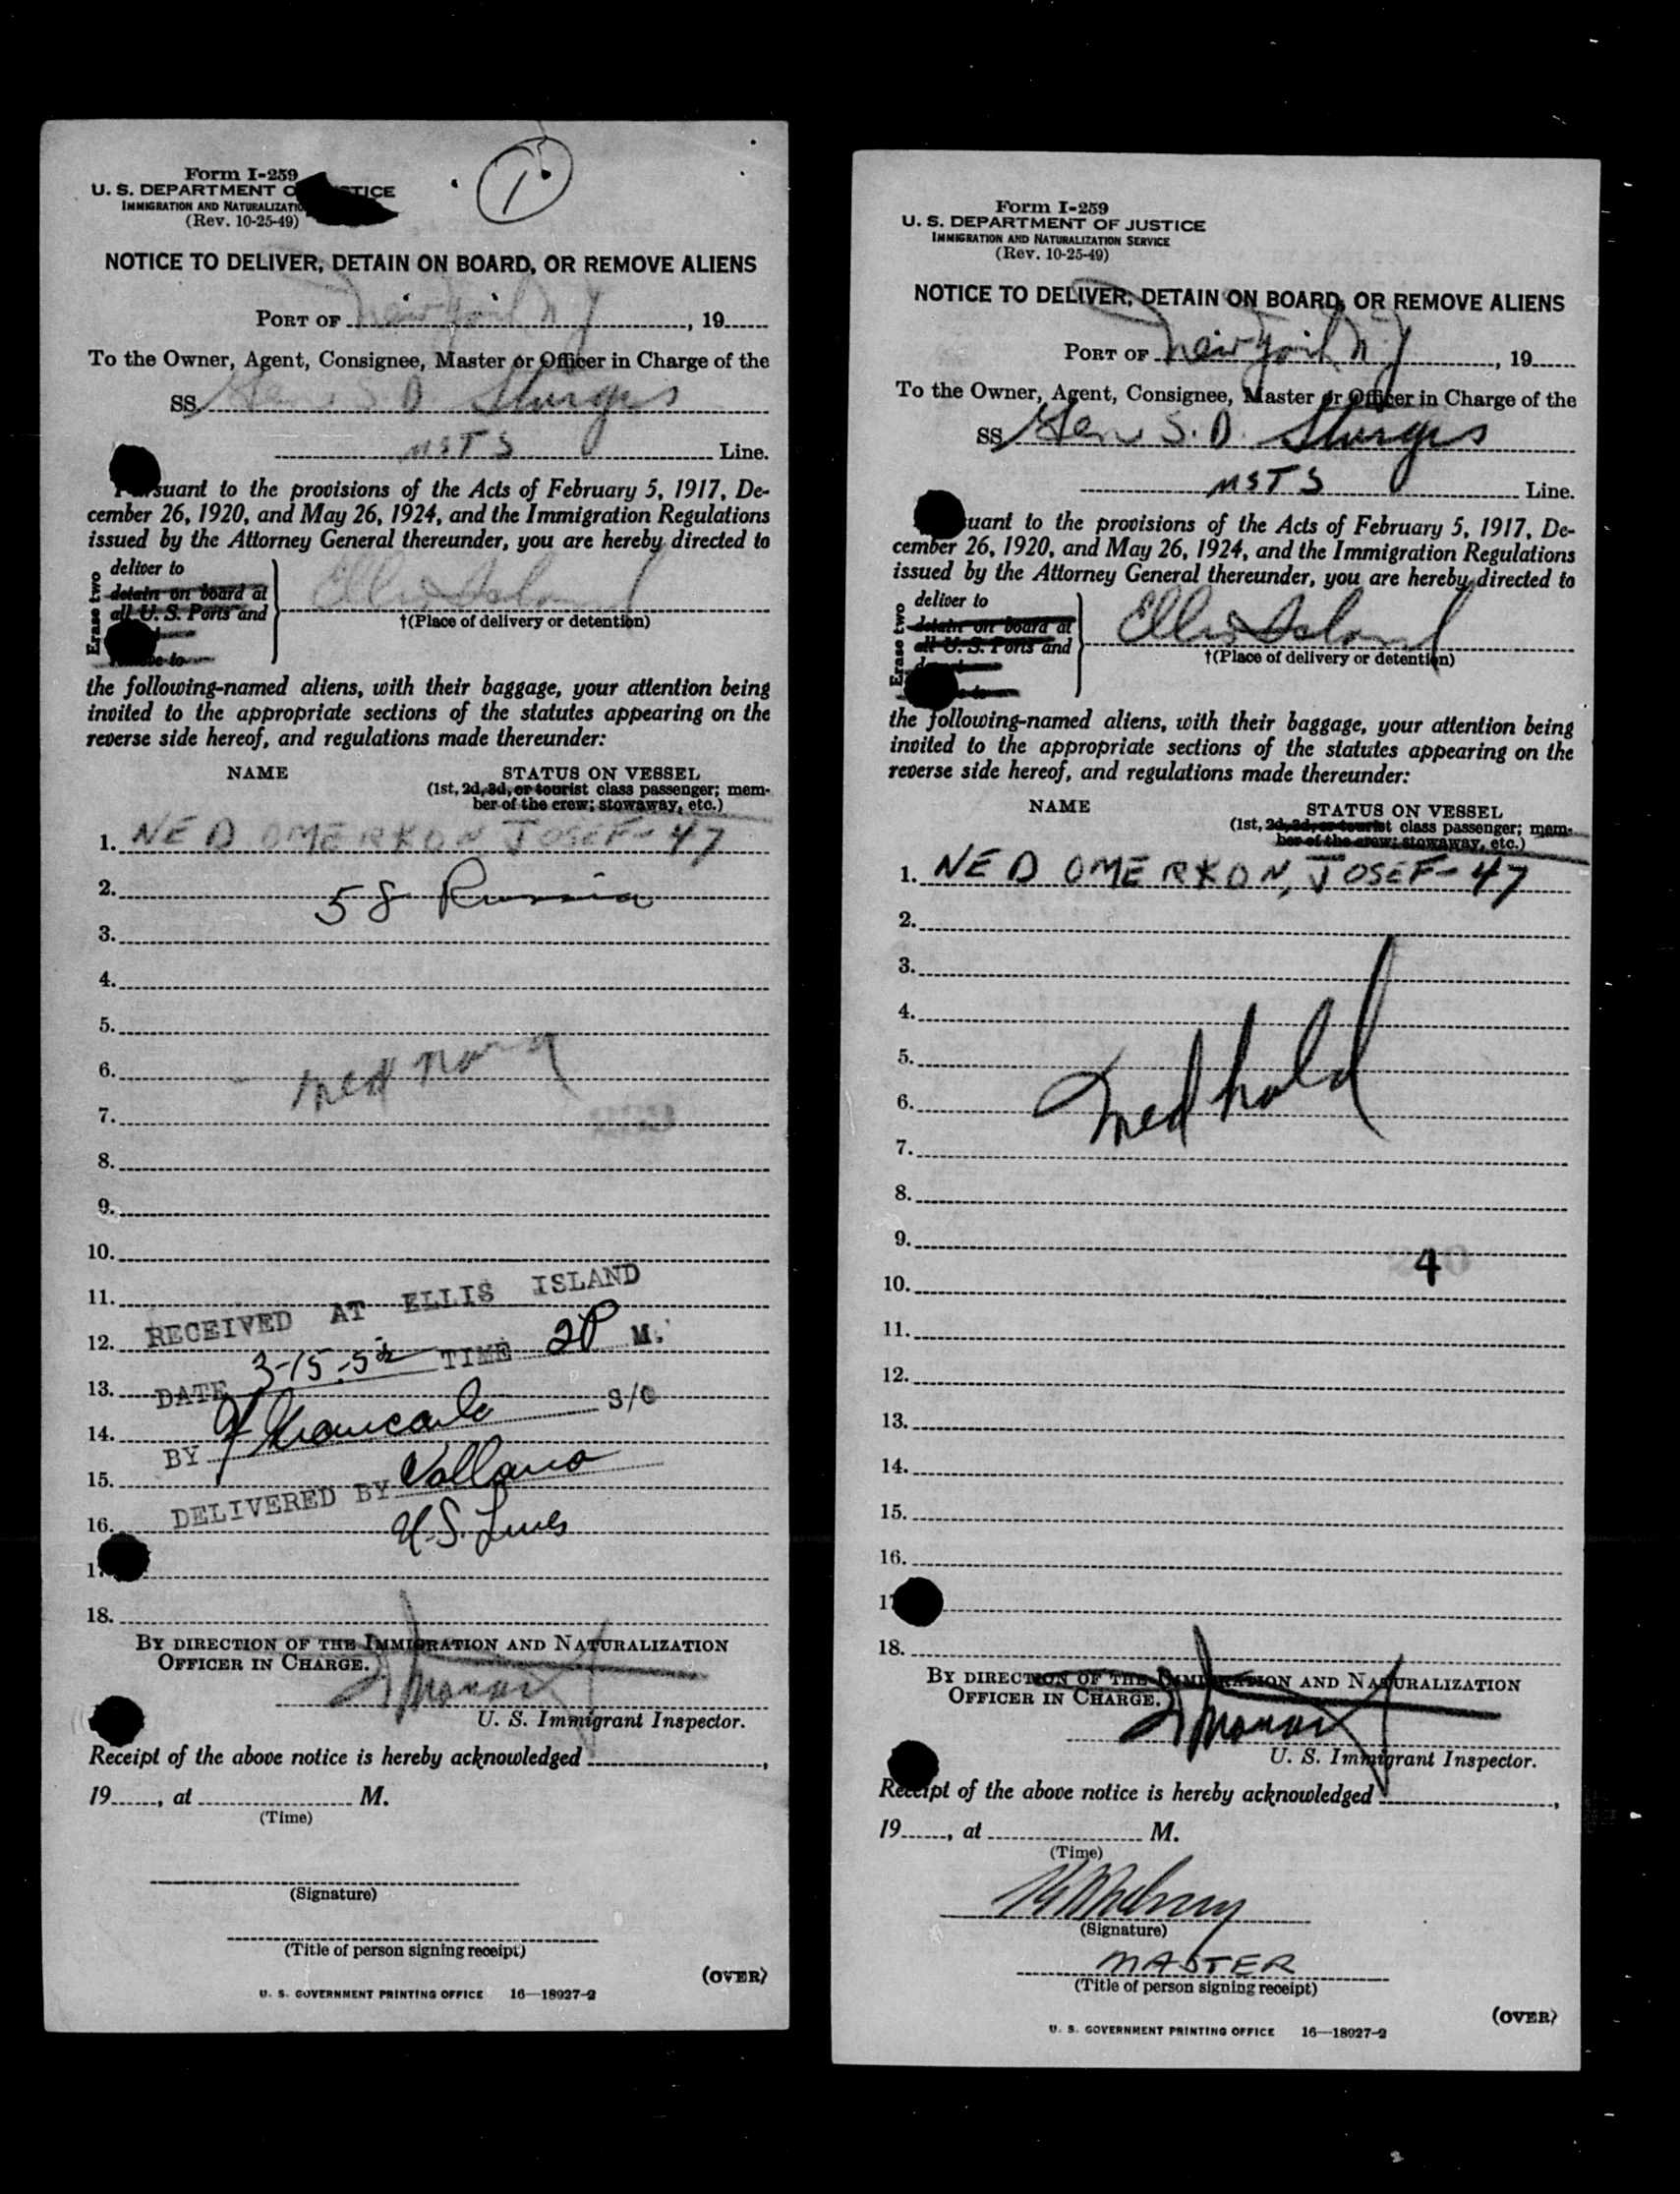 Form I-259
U. S. DEPARTMENT O STICE
IMMIGRATION AND NATURALIZATIO
(Rev. 10-25-49)
1
NOTICE TO DELIVER, DETAIN ON BOARD, OR REMOVE ALIENS
PORT OF New York N Y, 19
To the Owner, Agent, Consignee, Master or Officer in Charge of the
SS Gen S. D. Sturgis
MSTS Line.
Pursuant to the provisions of the Acts of February 5, 1917, De-
cember 26, 1920, and May 26, 1924, and the Immigration Regulations
issued by the Attorney General thereunder, you are hereby directed to
Erase two
deliver to
detain on board at
all U. S. Ports and
remove to
Ellis Island
†(Place of delivery or detention)
the following-named aliens, with their baggage, your attention being
invited to the appropriate sections of the statutes appearing on the
reverse side hereof, and regulations made thereunder:
NAME STATUS ON VESSEL
(1st, 2d, 3d, or tourist class passenger; mem-
ber of the crew; stowaway, etc.)
1. NED OMERKON JOSEF-47
2. 58 Russia
3.
4.
5.
6. med
7.
8.
9.
10.
11.
12. RECEIVED AT ELLIS ISLAND
13. DATE 3-15-52 TIME 2P M.
14. BY S/O
15.
16. DELIVERED BY Vollano
U.S. Lines
17.
18.
BY DIRECTION OF THE IMMIGRATION AND NATURALIZATION
OFFICER IN CHARGE.
U. S. Immigrant Inspector.
Receipt of the above notice is hereby acknowledged ,
19 , at M.
(Time)
(Signature)
(Title of person signing receipt)
(OVER)
U. S. GOVERNMENT PRINTING OFFICE 16—18927-2
Form I-259
U. S. DEPARTMENT OF JUSTICE
IMMIGRATION AND NATURALIZATION SERVICE
(Rev. 10-25-49)
NOTICE TO DELIVER, DETAIN ON BOARD, OR REMOVE ALIENS
PORT OF New York N.Y, 19
To the Owner, Agent, Consignee, Master or Officer in Charge of the
SS Gen S. D. Sturgis
MSTS Line.
uant to the provisions of the Acts of February 5, 1917, De-
cember 26, 1920, and May 26, 1924, and the Immigration Regulations
issued by the Attorney General thereunder, you are hereby directed to
Erase two
deliver to
detain on board at
all U. S. Ports and
Ellis Island
†(Place of delivery or detention)
the following-named aliens, with their baggage, your attention being
invited to the appropriate sections of the statutes appearing on the
reverse side hereof, and regulations made thereunder:
NAME STATUS ON VESSEL
(1st, 2d, 3d, or tourist class passenger; mem-
ber of the crew; stowaway, etc.)
1. NED OMERKON, JOSEF-47
2.
3.
4.
5.
6. Med hold
7.
8.
9.
4
10.
11.
12.
13.
14.
15.
16.
17
18.
BY DIRECTION OF THE IMMIGRATION AND NATURALIZATION
OFFICER IN CHARGE.
U. S. Immigrant Inspector.
Receipt of the above notice is hereby acknowledged ,
19 , at M.
(Time)
(Signature)
MASTER
(Title of person signing receipt)
(OVER)
U. S. GOVERNMENT PRINTING OFFICE 16—18027-2